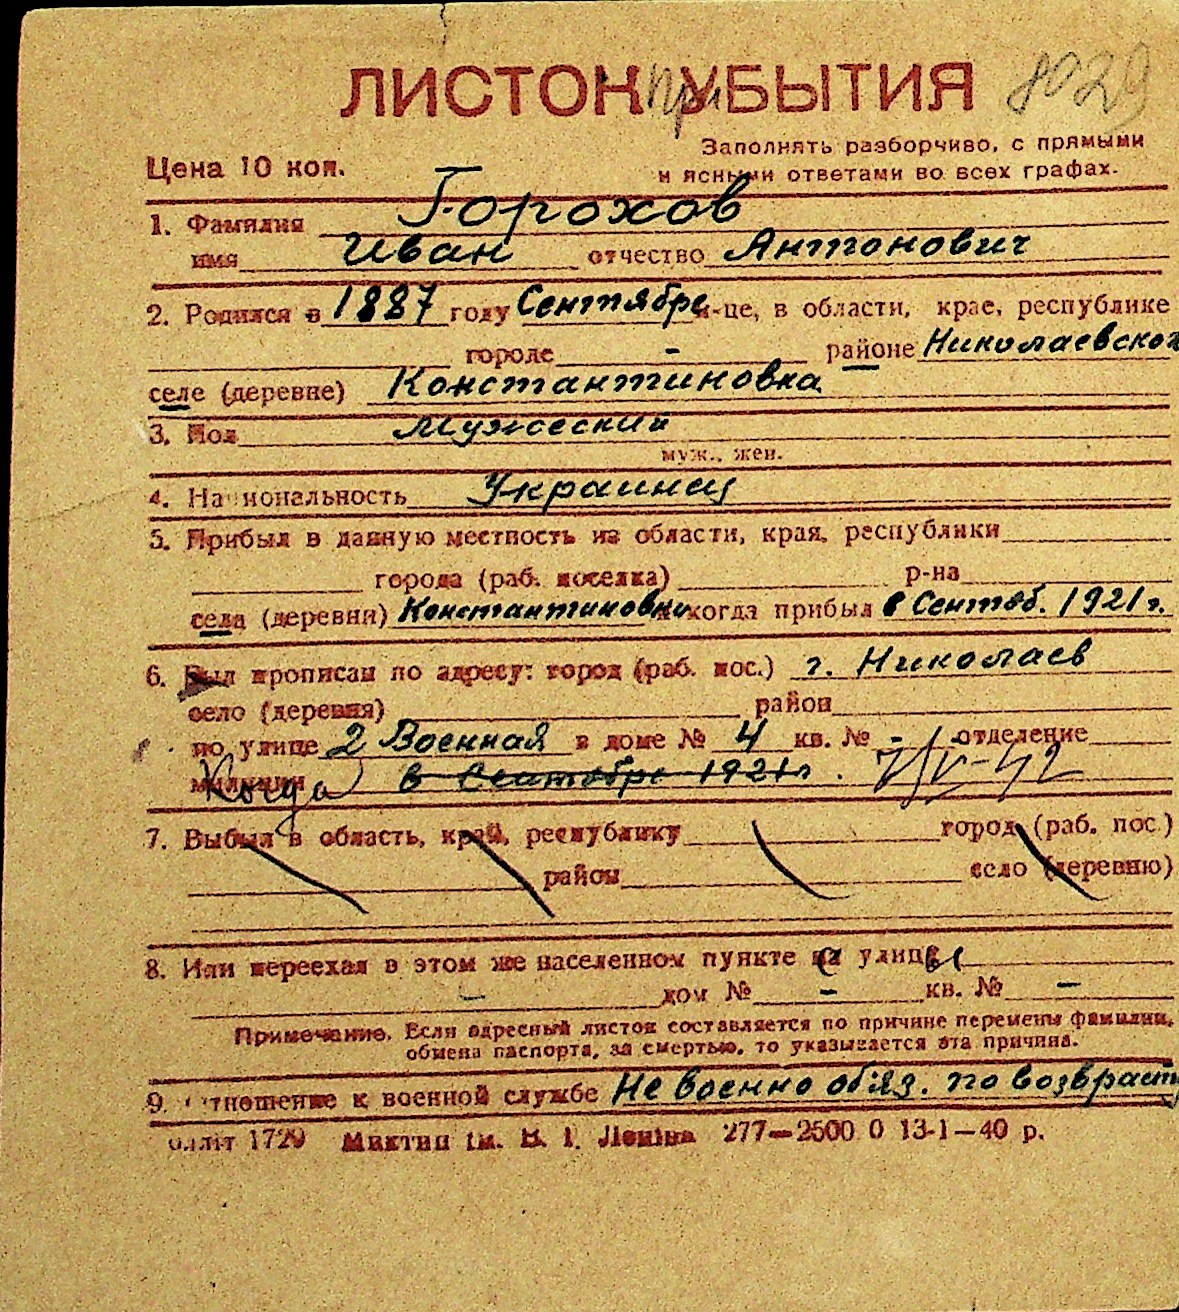 ЛИСТОК при УБЫТИЯ 8029
Цена 10 коп. Заполнять разборчиво, с прямыми
и ясными ответами во всех графах.
1. Фамилия Горохов
имя Иван отчество Антонович
2. Родился в 1887 году Сентябре м-це, в области, крае, республике
городе - районе Николаевском
селе (деревне) Константиновка
3. Пол Мужеский
муж., жен.
4. Национальность Украинец
5. Прибыл в данную местность из области, края, республики
города (раб. поселка) р-на
села (деревни) Константиновки и когда прибыл в Сентяб. 1921 г.
6. Был прописан по адресу: город (раб. пос.) г. Николаев
село (деревня) район
по улице 2 Военная в доме № 4 кв. № - отделение
милиции Когда в Сентябре 1921 г. 7/IV-42
7. Выбыл в область, край, республику город (раб. пос.)
район село (деревню)
8. Или переехал в этом же населенном пункте с улицы
- дом № - кв. № -
Примечание. Если адресный листок составляется по причине перемены фамилии,
обмена паспорта, за смертью, то указывается эта причина.
9. Отношение к военной службе Не военно обяз. по возврасту
1729 Миктип ім. В. І. Леніна 277—2500 0 13-1—40 р.